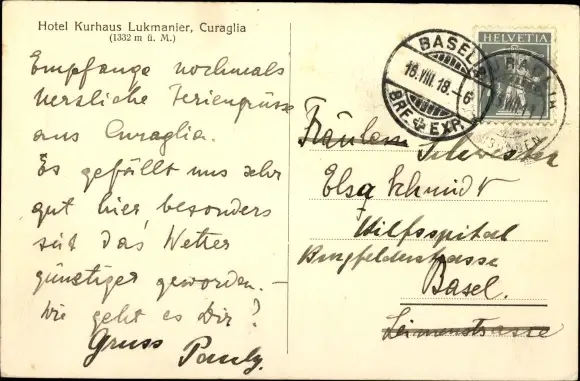 Hotel Kurhaus Lukmanier, Curaglia
(1332 m ü. M.)
Empfange nochmals
herzliche Feriengrüsse
aus Curaglia.
Es gefällt uns sehr
gut hier, besonders
seit das Wetter
günstiger geworden. –
Wie geht es Dir?
Gruss Pauly.
HELVETIA
BASEL 2
18.VIII.18.–6
BRF. EXP.
CURAGLIA
Fräulein Schwester
Elsa Schmidt
Hilfsspital
Burgfelderstrasse
Basel.
Leimenstrasse